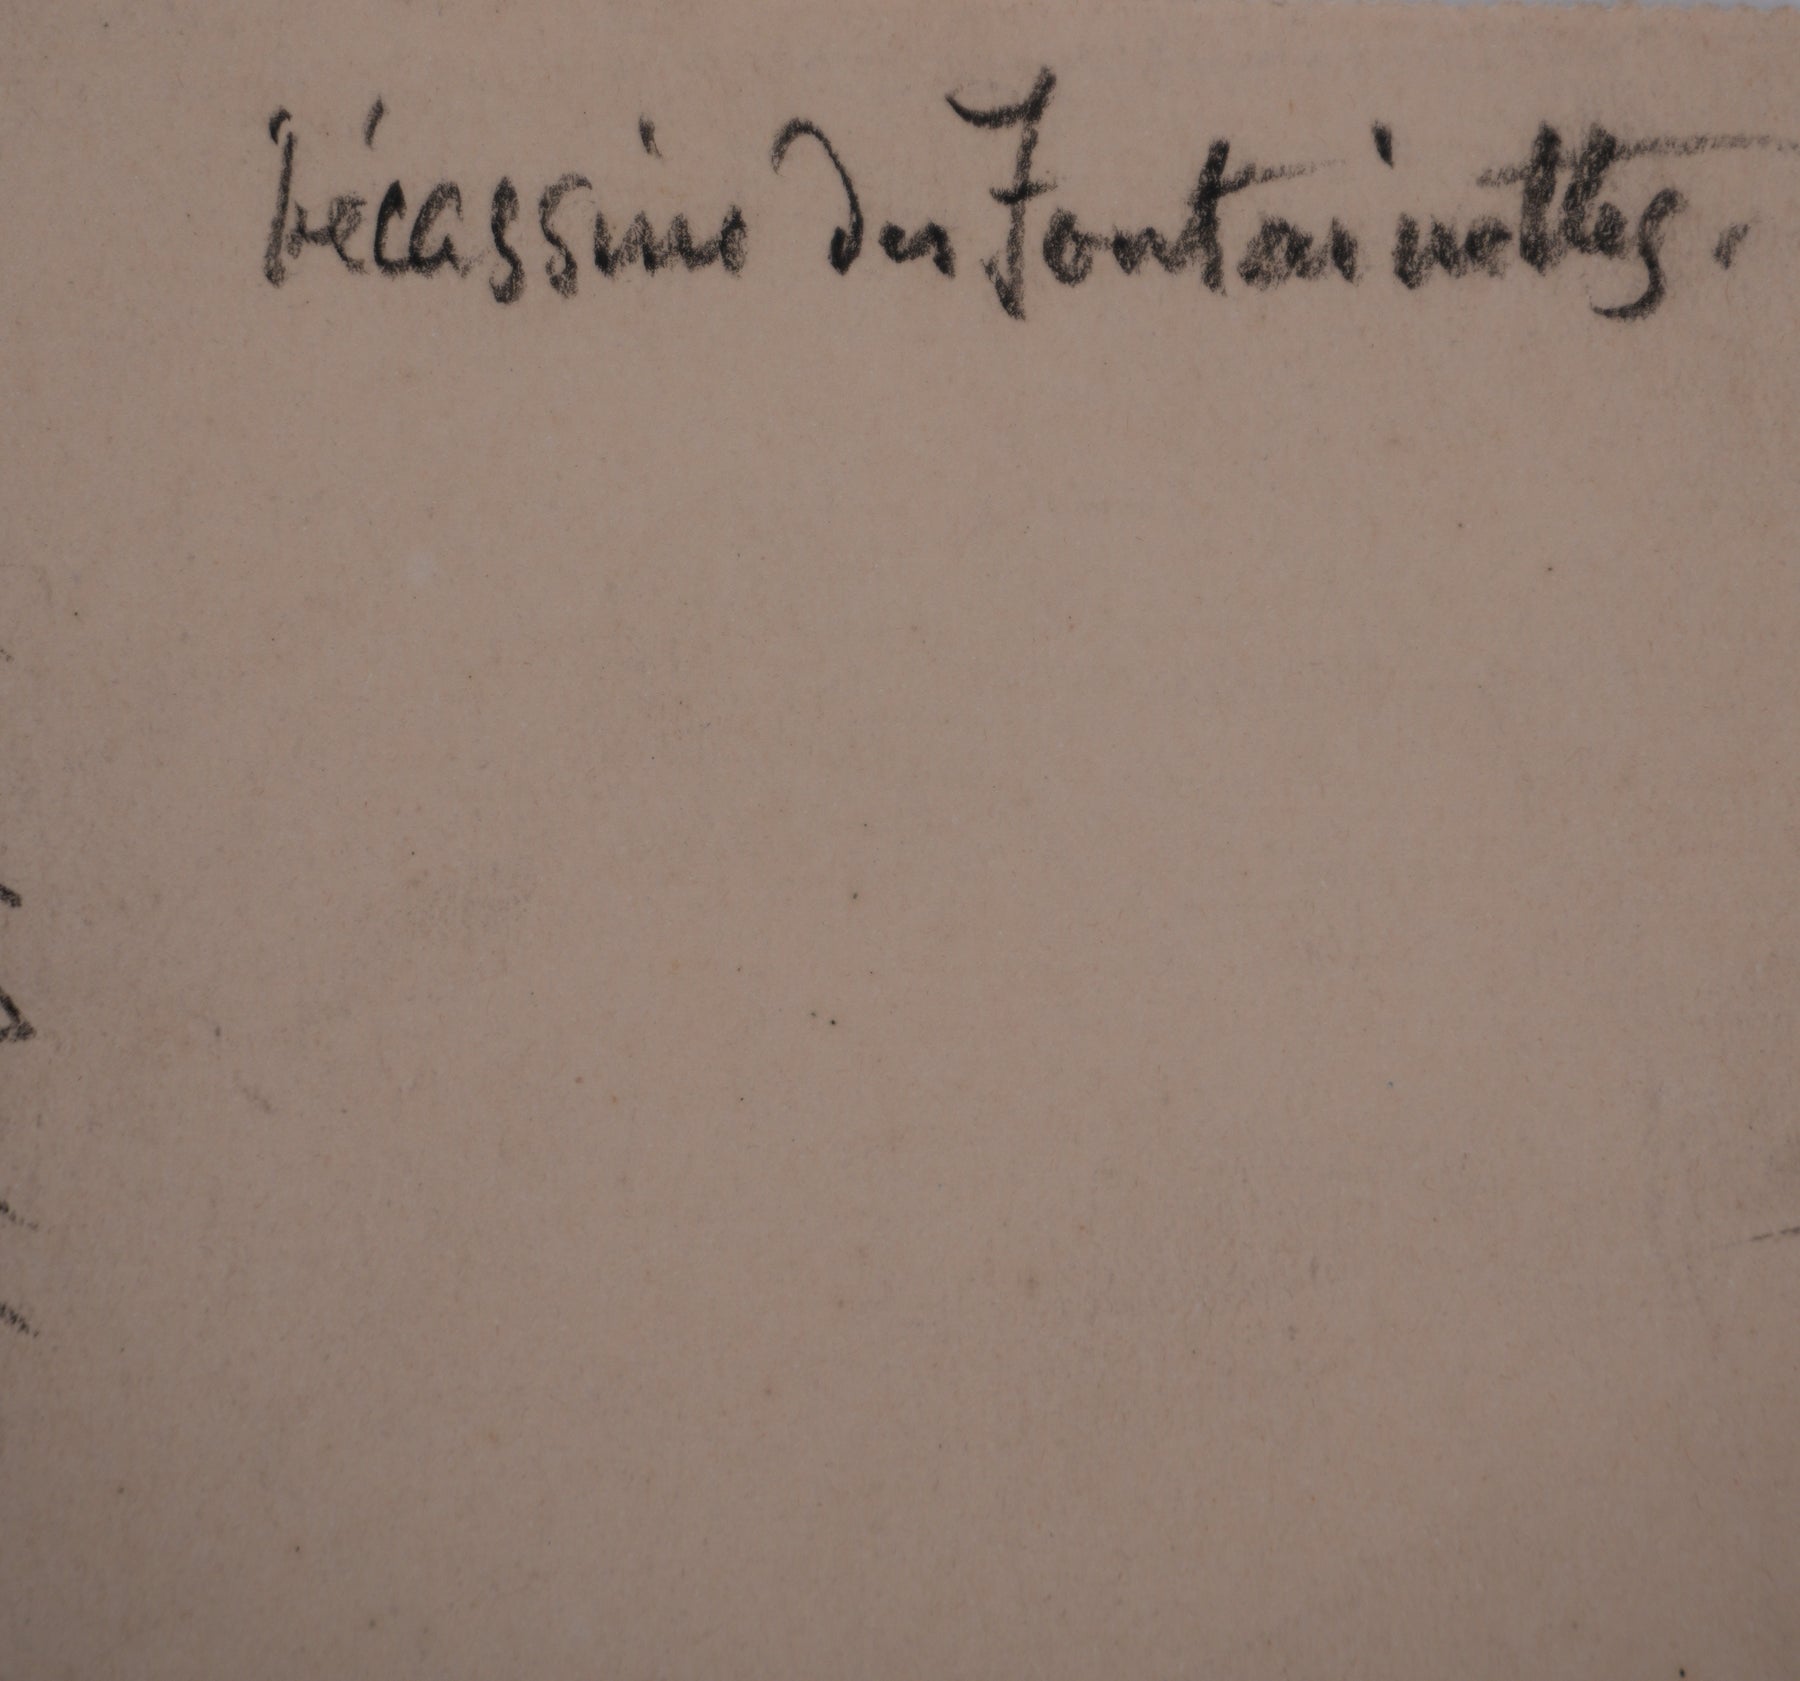 bécassine des Fontainettes.